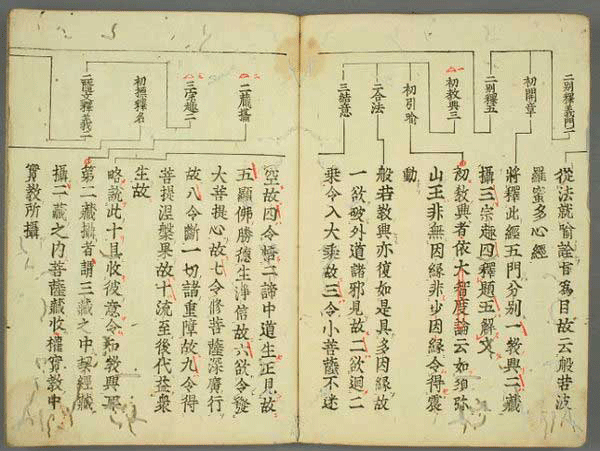 二別釋義門二
初開章
二別釋五
初教興三
初引喻
二合法
三結意
從法就喻詮旨為目故云般若波
羅蜜多心經
將釋此經五門分別一教興二藏
攝三宗趣四釋題五解文
初教興者依大智度論云如須弥
山王非無因緣非少因緣令得震
動
般若教興亦復如是具多因緣故
一欲破外道諸邪見故二欲迴二
乘令入大乘故三令小菩薩不迷
二藏攝
三宗趣二
初摠釋名
二文釋義二
空故四令悟二諦中道生正見故
五顯佛勝德生淨信故六欲令發
大菩提心故七令修菩薩深廣行
故八令斷一切諸重障故九令得
菩提涅槃果故十流至後代益衆
生故
略說此十具收彼意令知教興
第二藏攝者謂三藏之中契經藏
攝二藏之內菩薩藏收權實教中
實教所攝